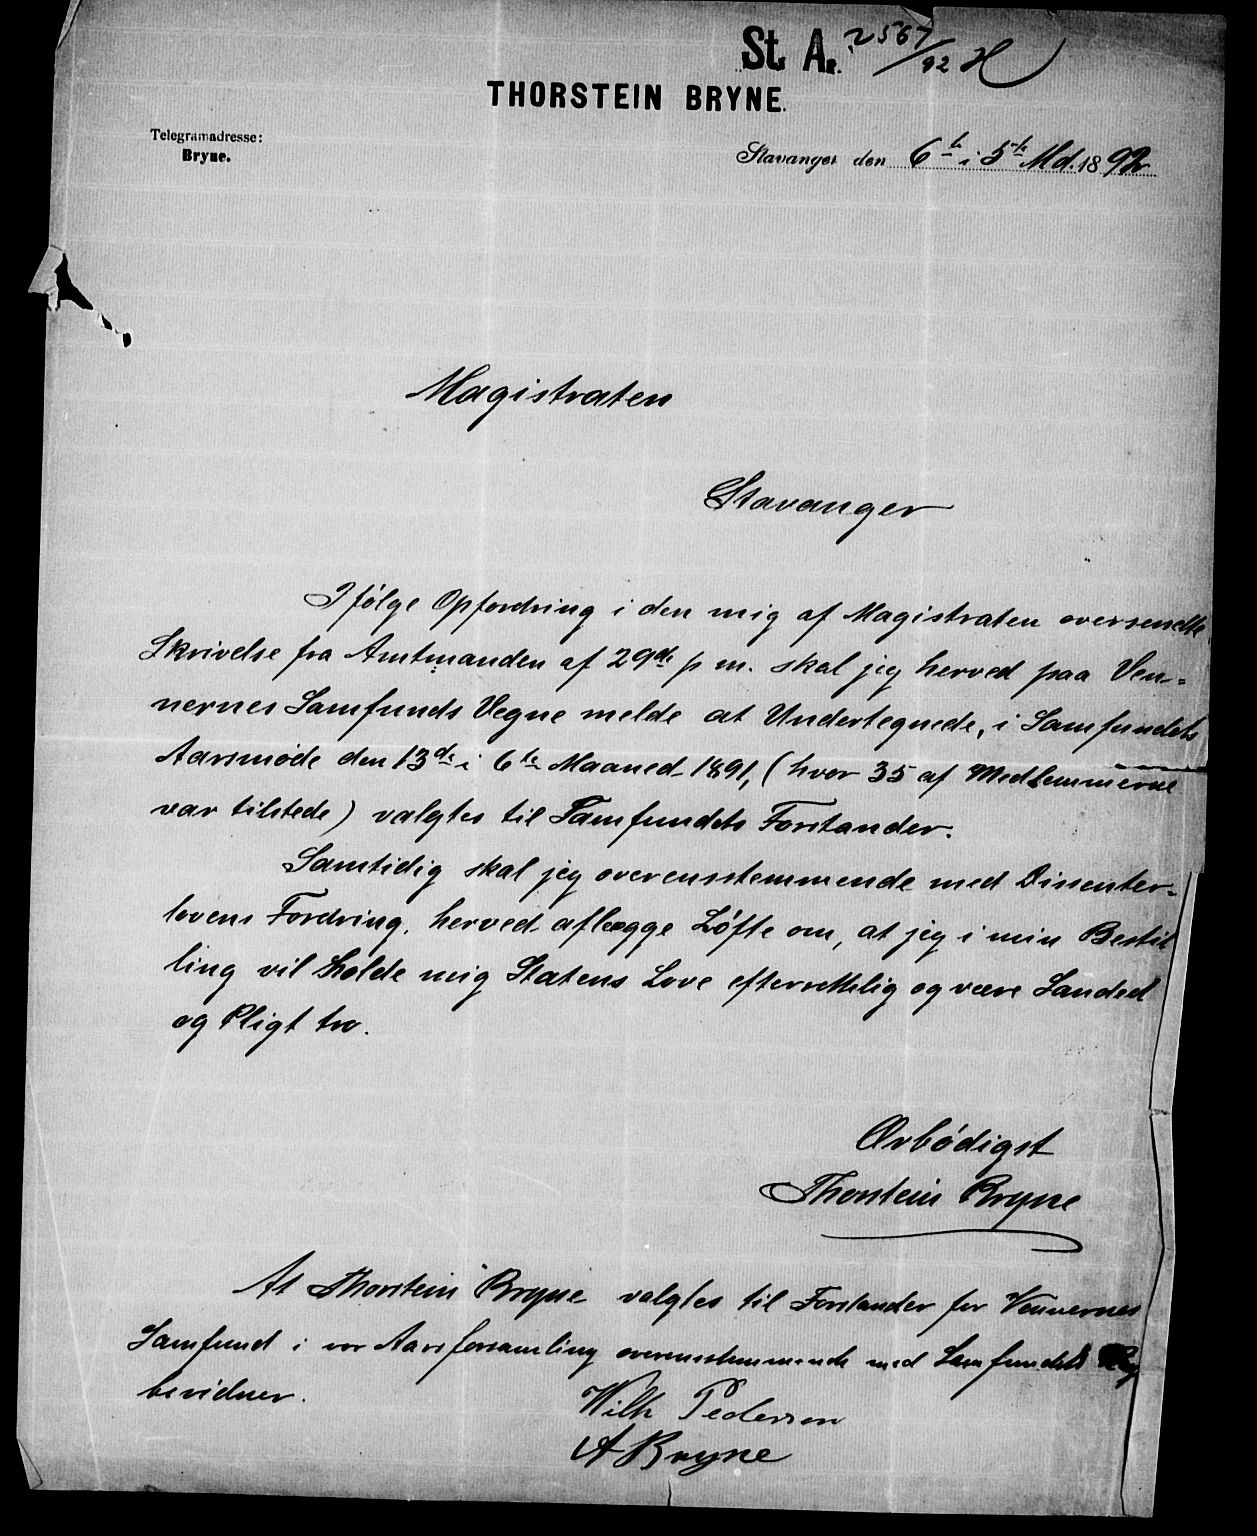 St. A. 2567/92 H
THORSTEIN BRYNE.
Telegramadresse:
Bryne.
Stavanger den 6te i 5te Md. 1892
Magistraten
Stavanger
Ifølge Opfordring i den mig af Magistraten oversendte
Skrivelse fra Amtmanden af 29de p m. skal jeg herved paa Ven-
nernes Samfunds Vegne melde at Undertegnede, i Samfundets
Aarsmøde den 13de i 6te Maaned 1891, (hvor 35 af Medlemmerne
var tilstede) valgtes til Samfundets Forstander.
Samtidig skal jeg overensstemmende med Dissenter-
lovens Fordring, herved aflægge Løfte om, at jeg i min Bestil
ling vil holde mig Statens Love efterrettelig og være Sandhed
og Pligt tro.
Ærbødigst
Thorstein Bryne
At Thorstein Bryne valgtes til Forstander for Vennernes
Samfund i vor Aarsforsamling overensstemmende med Samfundets
bevidner.
Wilh Pedersen
A Bryne